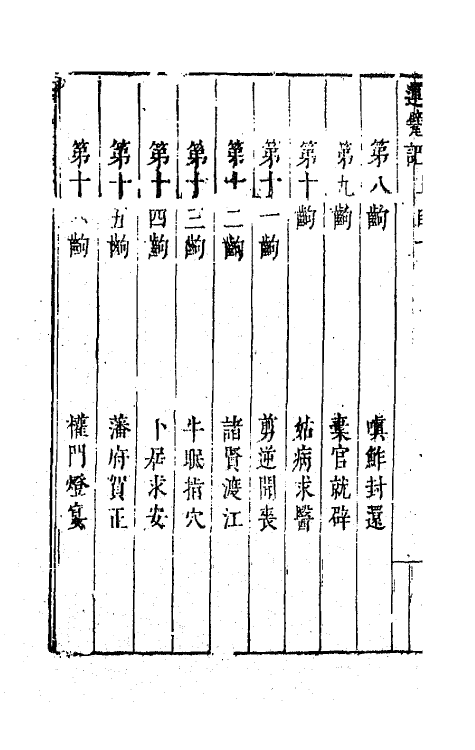 運甓記
第八齣 嗔鮓封還
第九齣 棄官就辟
第十齣 姑病求醫
第十一齣 剪逆開喪
第十二齣 諸賢渡江
第十三齣 牛眠指穴
第十四齣 卜居求安
第十五齣 藩府賀正
第十六齣 權門燈宴